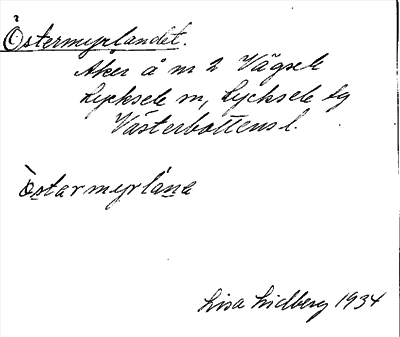 Östermyrlandet.
Åker å nr 2 Vägsele
Lycksele sn, Lycksele lg
Västerbottens l.
Östarmyrlána
Lisa Lidberg 1934